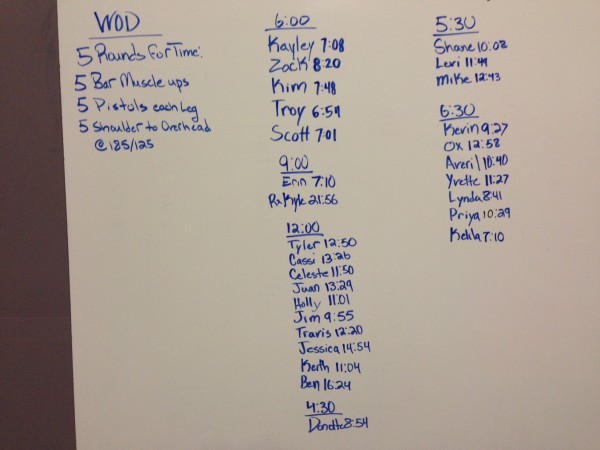 WOD
5 Rounds For Time:
5 Bar Muscle ups
5 Pistols each Leg
5 Shoulder to Overhead
@ 185/125
6:00
Kayley 7:08
Zack 8:20
Kim 7:48
Troy 6:54
Scott 7:01
9:00
Erin 7:10
Rx Kyle 21:56
12:00
Tyler 12:50
Cassi 13:26
Celeste 11:50
Juan 13:29
Holly 11:01
Jim 9:55
Travis 12:20
Jessica 14:54
Keith 11:04
Ben 16:24
4:30
8:54
5:30
Shane 10:02
Lexi 11:44
Mike 12:43
6:30
Kevin 9:27
Ox 12:58
Averil 10:40
Yvette 11:27
Lynda 8:41
Priya 10:29
Kelila 7:10